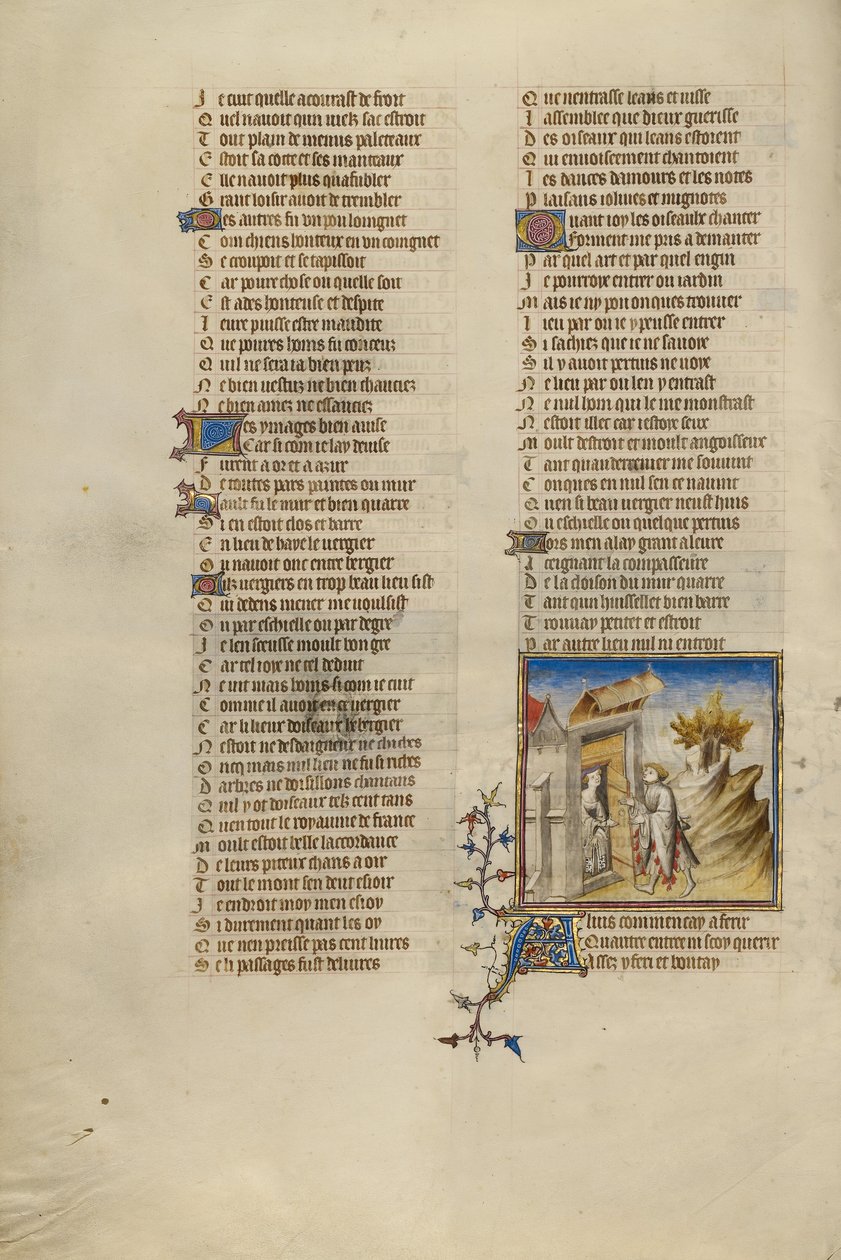 Je cuit quelle acourast de froit
Quel navoit qun viels sac estroit
Tout plain de menus paleteaux
Cestoit sa cotte et ses manteaux
Elle navoit plus quafubler
Grant loisir avoit de trembler
Des autres fu un pou loingnet
Com chiens honteux en un coingnet
Se croupoit et se tapissoit
Car povre chose ou quelle soit
Est ades honteuse et despite
Leure puisse estre maudite
Que povres homs fu conceuz
Quil ne sera ia bien peuz
Ne bien vestuz ne bien chauciez
Ne bien amez ne essauciez
Les ymages bien avise
Car si com ie lay devise
Furent a or et a azur
De toutes pars paintes ou mur
Hault fu le mur et bien quarre
Si en estoit clos et barre
En lieu de haye le vergier
Ou navoit onc entre bergier
Cilz vergiers en trop beau lieu sist
Qui dedens mener me voulsist
Ou par eschielle ou par degre
Je len sceusse moult bon gre
Car tel ioye ne tel deduit
Ne vit mais homs si com ie cuit
Comme il avoit en ce vergier
Car li lieux doiseaux herbergier
Nestoit ne desdaigneux ne chiches
Oncq mais nul lieu ne fu si riches
Darbres ne dorsillons chantans
Quil y ot doiseaux telz cent tans
Quen tout le royaume de france
Moult estoit belle laccordance
De leurs piteux chans a oir
Tout le mont sen deut esioir
Je endroit moy men esioy
Si durement quant les oy
Que nen preisse pas cent livres
Se li passages fust delivres
Que nentrasse leans et visse
Lassemblee que dieux guerisse
Des oiseaux qui leans estoient
Qui envoisement chantoient
Les dances damours et les notes
Plaisans iolives et mignotes
Quant ioy les oiseaulx chanter
Forment me pris a demanter
Par quel art et par quel engin
Je pourroye entrer ou iardin
Mais ie ny pou onques trouver
Lieu par ou ie y peusse entrer
Si sachiez que ie ne savoie
Sil y avoit pertuis ne voye
Ne lieu par ou len y entrast
Ne nul hom qui le me monstrast
Nestoit illec car iestoye seux
Moult destroit et moult angoisseux
Tant quau derrenier me souvint
Conques en nul sen ce navint
Quen si beau vergier neust huis
Ou eschielle ou quelque pertuis
Lors men alay grant aleure
Aceignant la compasseure
De la cloison du mur quarre
Tant qun huisselet bien barre
Trouvay petitet et estroit
Par autre lieu nul ni entroit
A luis commencay a ferir
Quautre entree ni scoy querir
Assez y feri et boutay